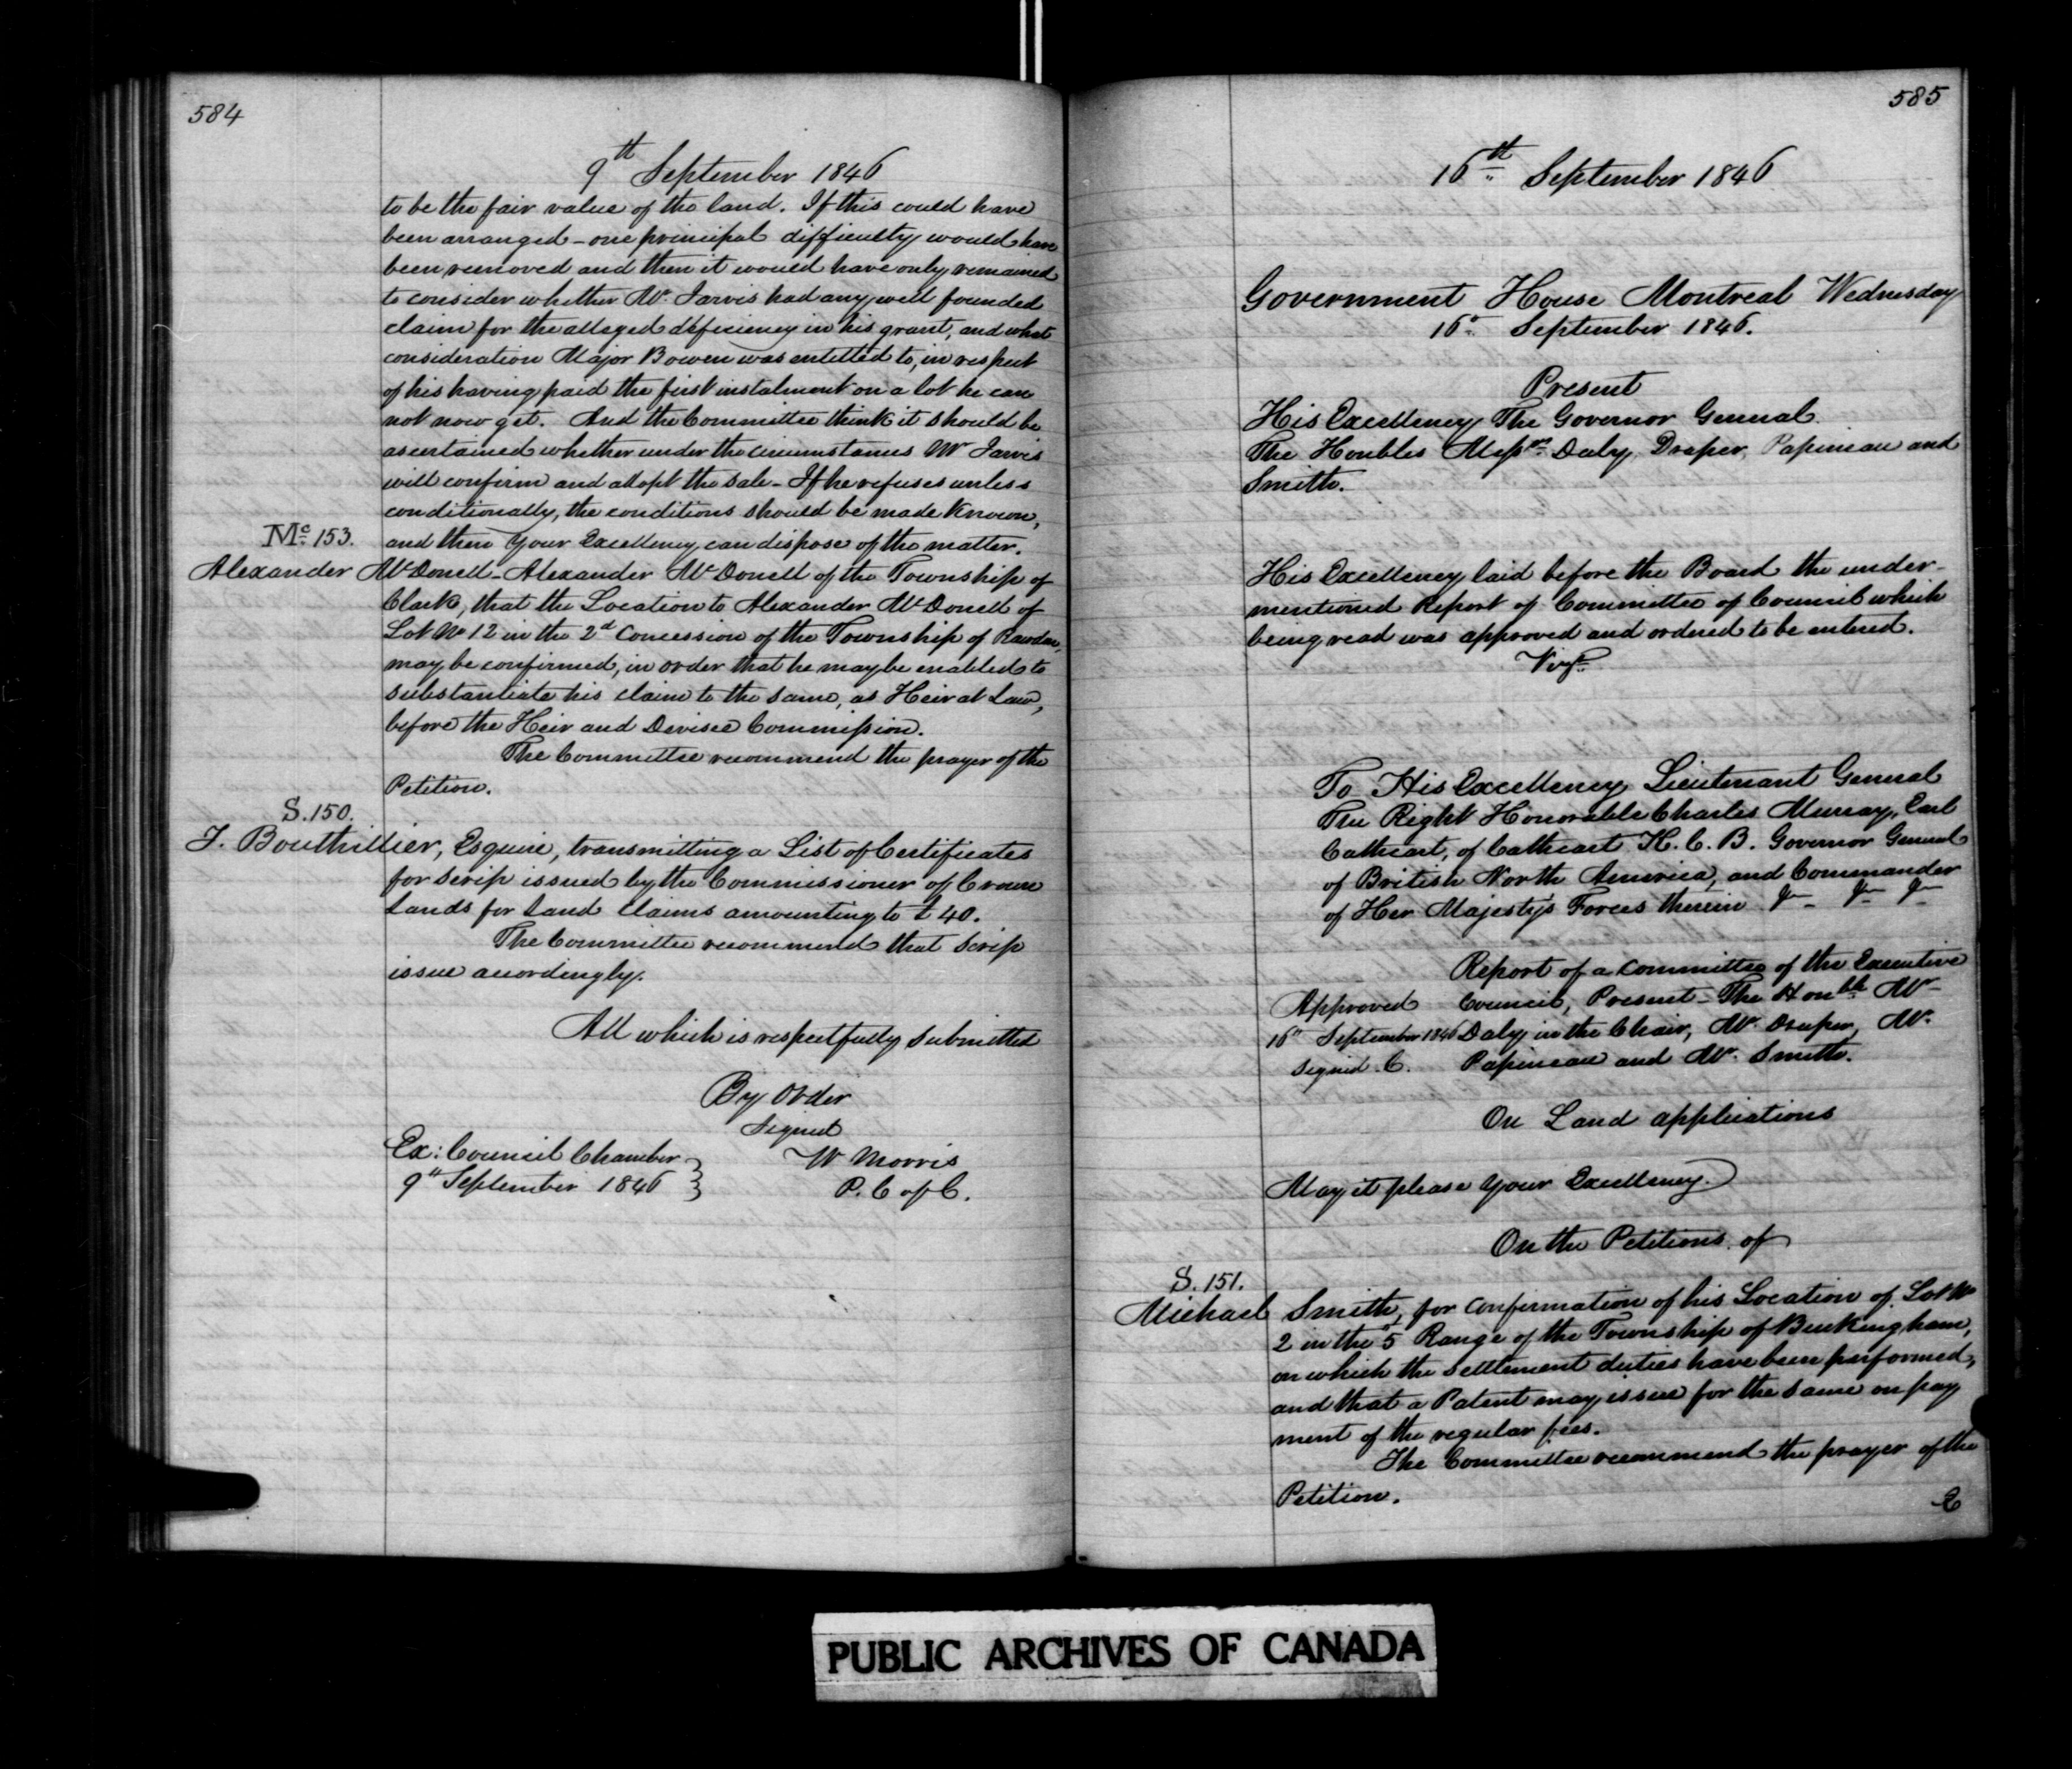 584
9th September 1846
to be the fair value of the land. If this could have
been arranged - one principal difficulty would have
been removed and then it would have only remained
to consider whether Mr. Jarvis had any well founded
claim for the alleged deficiency in his grant, and what
consideration Major Bowen was entitled to, in respect
of his having paid the first instalment on a lot he can
not now get. And the Committee think it should be
ascertained whether under the circumstances Mr Jarvis
will confirm and adopt the sale - If he refuses unless
conditionally, the conditions should be made known,
and then Your Excellency can dispose of the matter.
Mc 153.
Alexander McDonell - Alexander McDonell of the Township of
Clark, that the Location to Alexander McDonell of
Lot No 12 in the 2d Concession of the Township of Rawdon,
may be confirmed, in order that he may be enabled to
substantiate his claim to the same, as Heir at Law,
before the Heir and Devisee Commission.
The Committee recommend the prayer of the
Petition.
S. 150.
T. Bouthillier, Esquire, transmitting a List of Certificates
for Scrip issued by the Commissioner of Crown
Lands for Land Claims amounting to £40.
The Committee recommend that Scrip
issue accordingly.
All which is respectfully submitted
By Order
Signed
Ex: Council Chamber } W Morris
9th September 1846 } P. C of C.
585
16th September 1846
Government House Montreal Wednesday
16th September 1846.
Present
His Excellency The Governor General
The Honbles Messrs Daly, Draper, Papineau and
Smith.
His Excellency laid before the Board the under-
mentioned Report of Committee of Council which
being read was approved and ordered to be entered.
Vizt.
To His Excellency Lieutenant General
The Right Honorable Charles Murray, Earl
Cathcart, of Cathcart K. C. B. Governor General
of British North America, and Commander
of Her Majesty's Forces therein &c &c &c
Report of a Committee of the Executive
Approved Council, Present - The Honble Mr
16th September 1846 Daly in the Chair, Mr. Draper, Mr.
Signed C. Papineau and Mr. Smith.
On Land applications
May it please Your Excellency
On the Petitions of
S. 151.
Michael Smith, for confirmation of his Location of Lot No
2 in the 5 Range of the Township of Buckingham,
on which the settlement duties have been performed,
and that a Patent may issue for the same on pay
ment of the regular fees.
The Committee recommend the prayer of the
Petition.
PUBLIC ARCHIVES OF CANADA